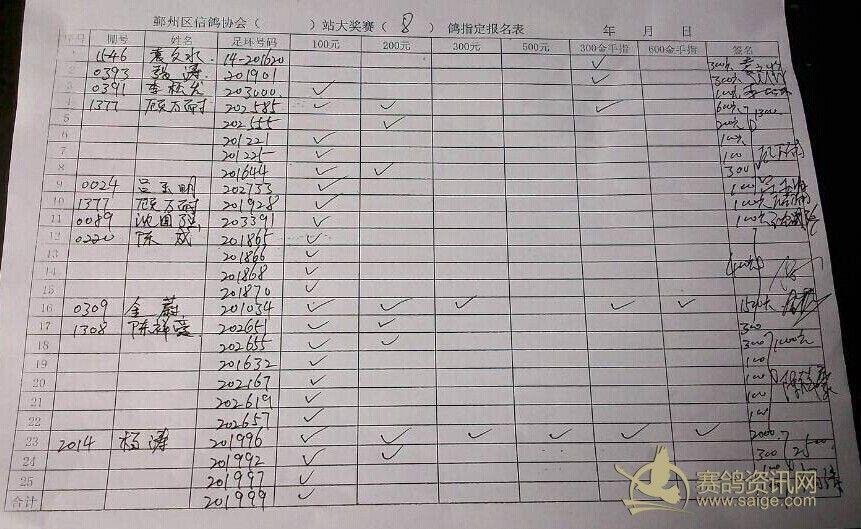 鄞州区信鸽协会（ ）站大奖赛（ 8 ）鸽指定报名表 年 月 日
序号 棚号 姓名 足环号码 100元 200元 300元 500元 300金手指 600金手指 签名
1 1546 袁久水 14-201620 ✓
2 0393 张涛 201901 ✓
3 0391 李松 203000 ✓
4 1377 202585 ✓ ✓ ✓
5 202555 ✓
6 201221 ✓
7 201225 ✓ 100
8 201644 ✓ ✓ 300
9 0024 吕玉明 202733 ✓
10 1377 201928 ✓
11 0089 沈国强 203391 ✓
12 0220 陈威 201865 ✓
13 201866 ✓
14 201868 ✓
15 201870 ✓
16 0309 金蔚 201034 ✓ ✓ ✓ ✓ ✓
17 1308 202651 ✓ ✓ 300
18 202655 ✓ ✓ 300
19 201632 ✓ 100
20 202167 ✓ 100
21 202619 ✓ 100
22 202657 ✓ 100
23 2014 杨涛 201996 ✓ ✓ ✓ ✓ ✓ ✓ 2000
24 201992 ✓ ✓ 300
25 201997 ✓
合计 201999 ✓
赛鸽资讯网
www.saige.com